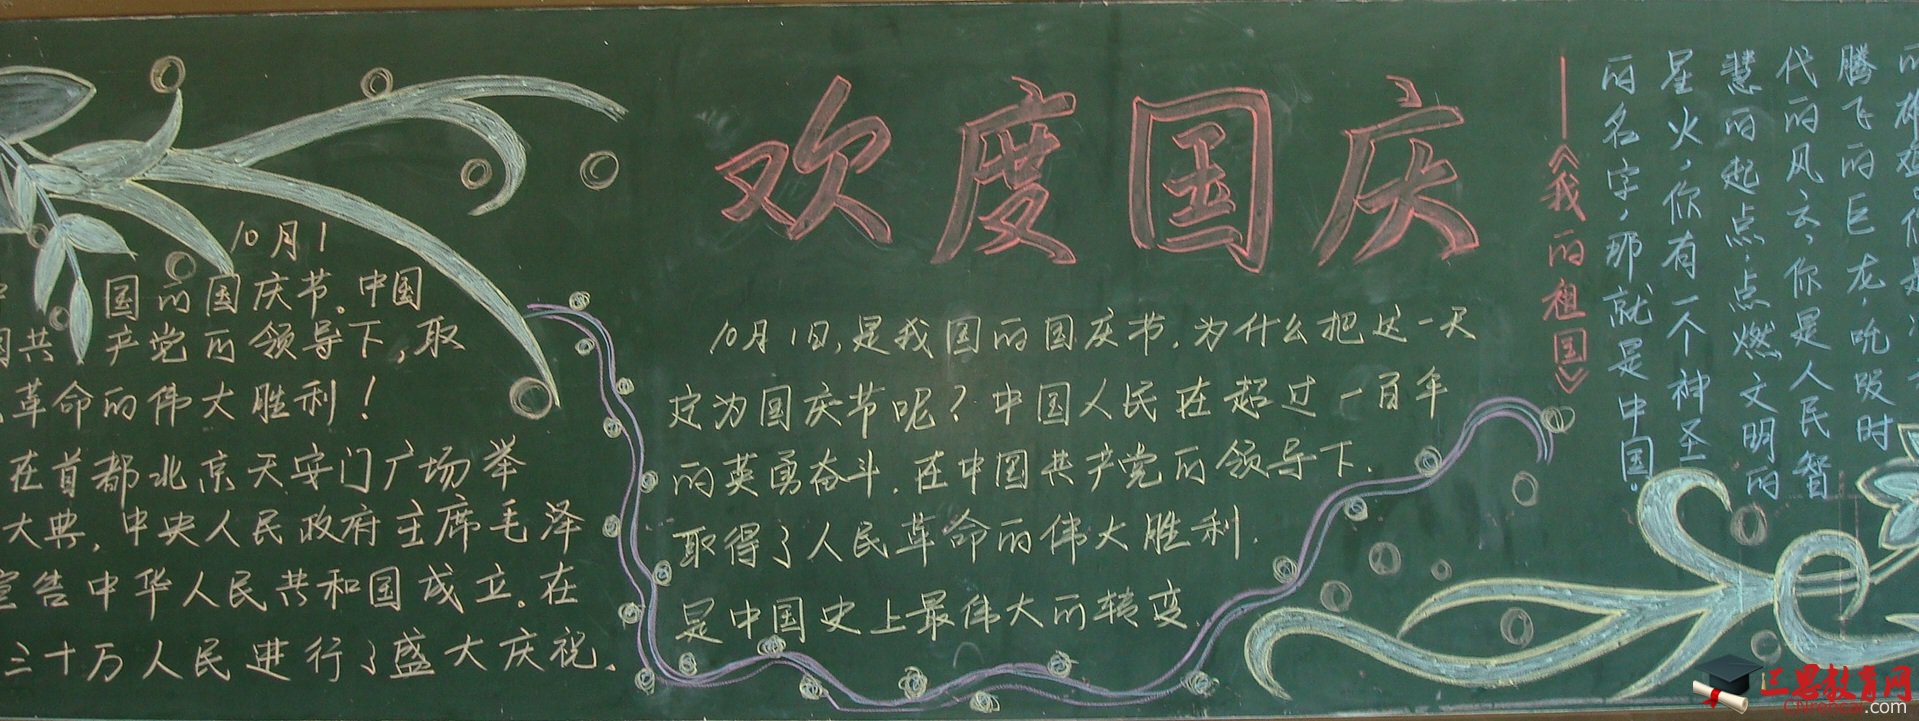 欢度国庆
10月1
国的国庆节。中国
共产党的领导下，取
革命的伟大胜利！
在首都北京天安门广场举
大典，中央人民政府主席毛泽
宣告中华人民共和国成立。在
三十万人民进行了盛大庆祝。
10月1日，是我国的国庆节，为什么把这一天
定为国庆节呢？中国人民在超过一百年
的英勇奋斗，在中国共产党的领导下，
取得了人民革命的伟大胜利，
是中国史上最伟大的转变。
腾飞的巨龙，吮吸时
代的风云，你是人民智
慧的起点，点燃文明的
星火，你有一个神圣
的名字，那就是中国。
——《我的祖国》
三思教育网
.com